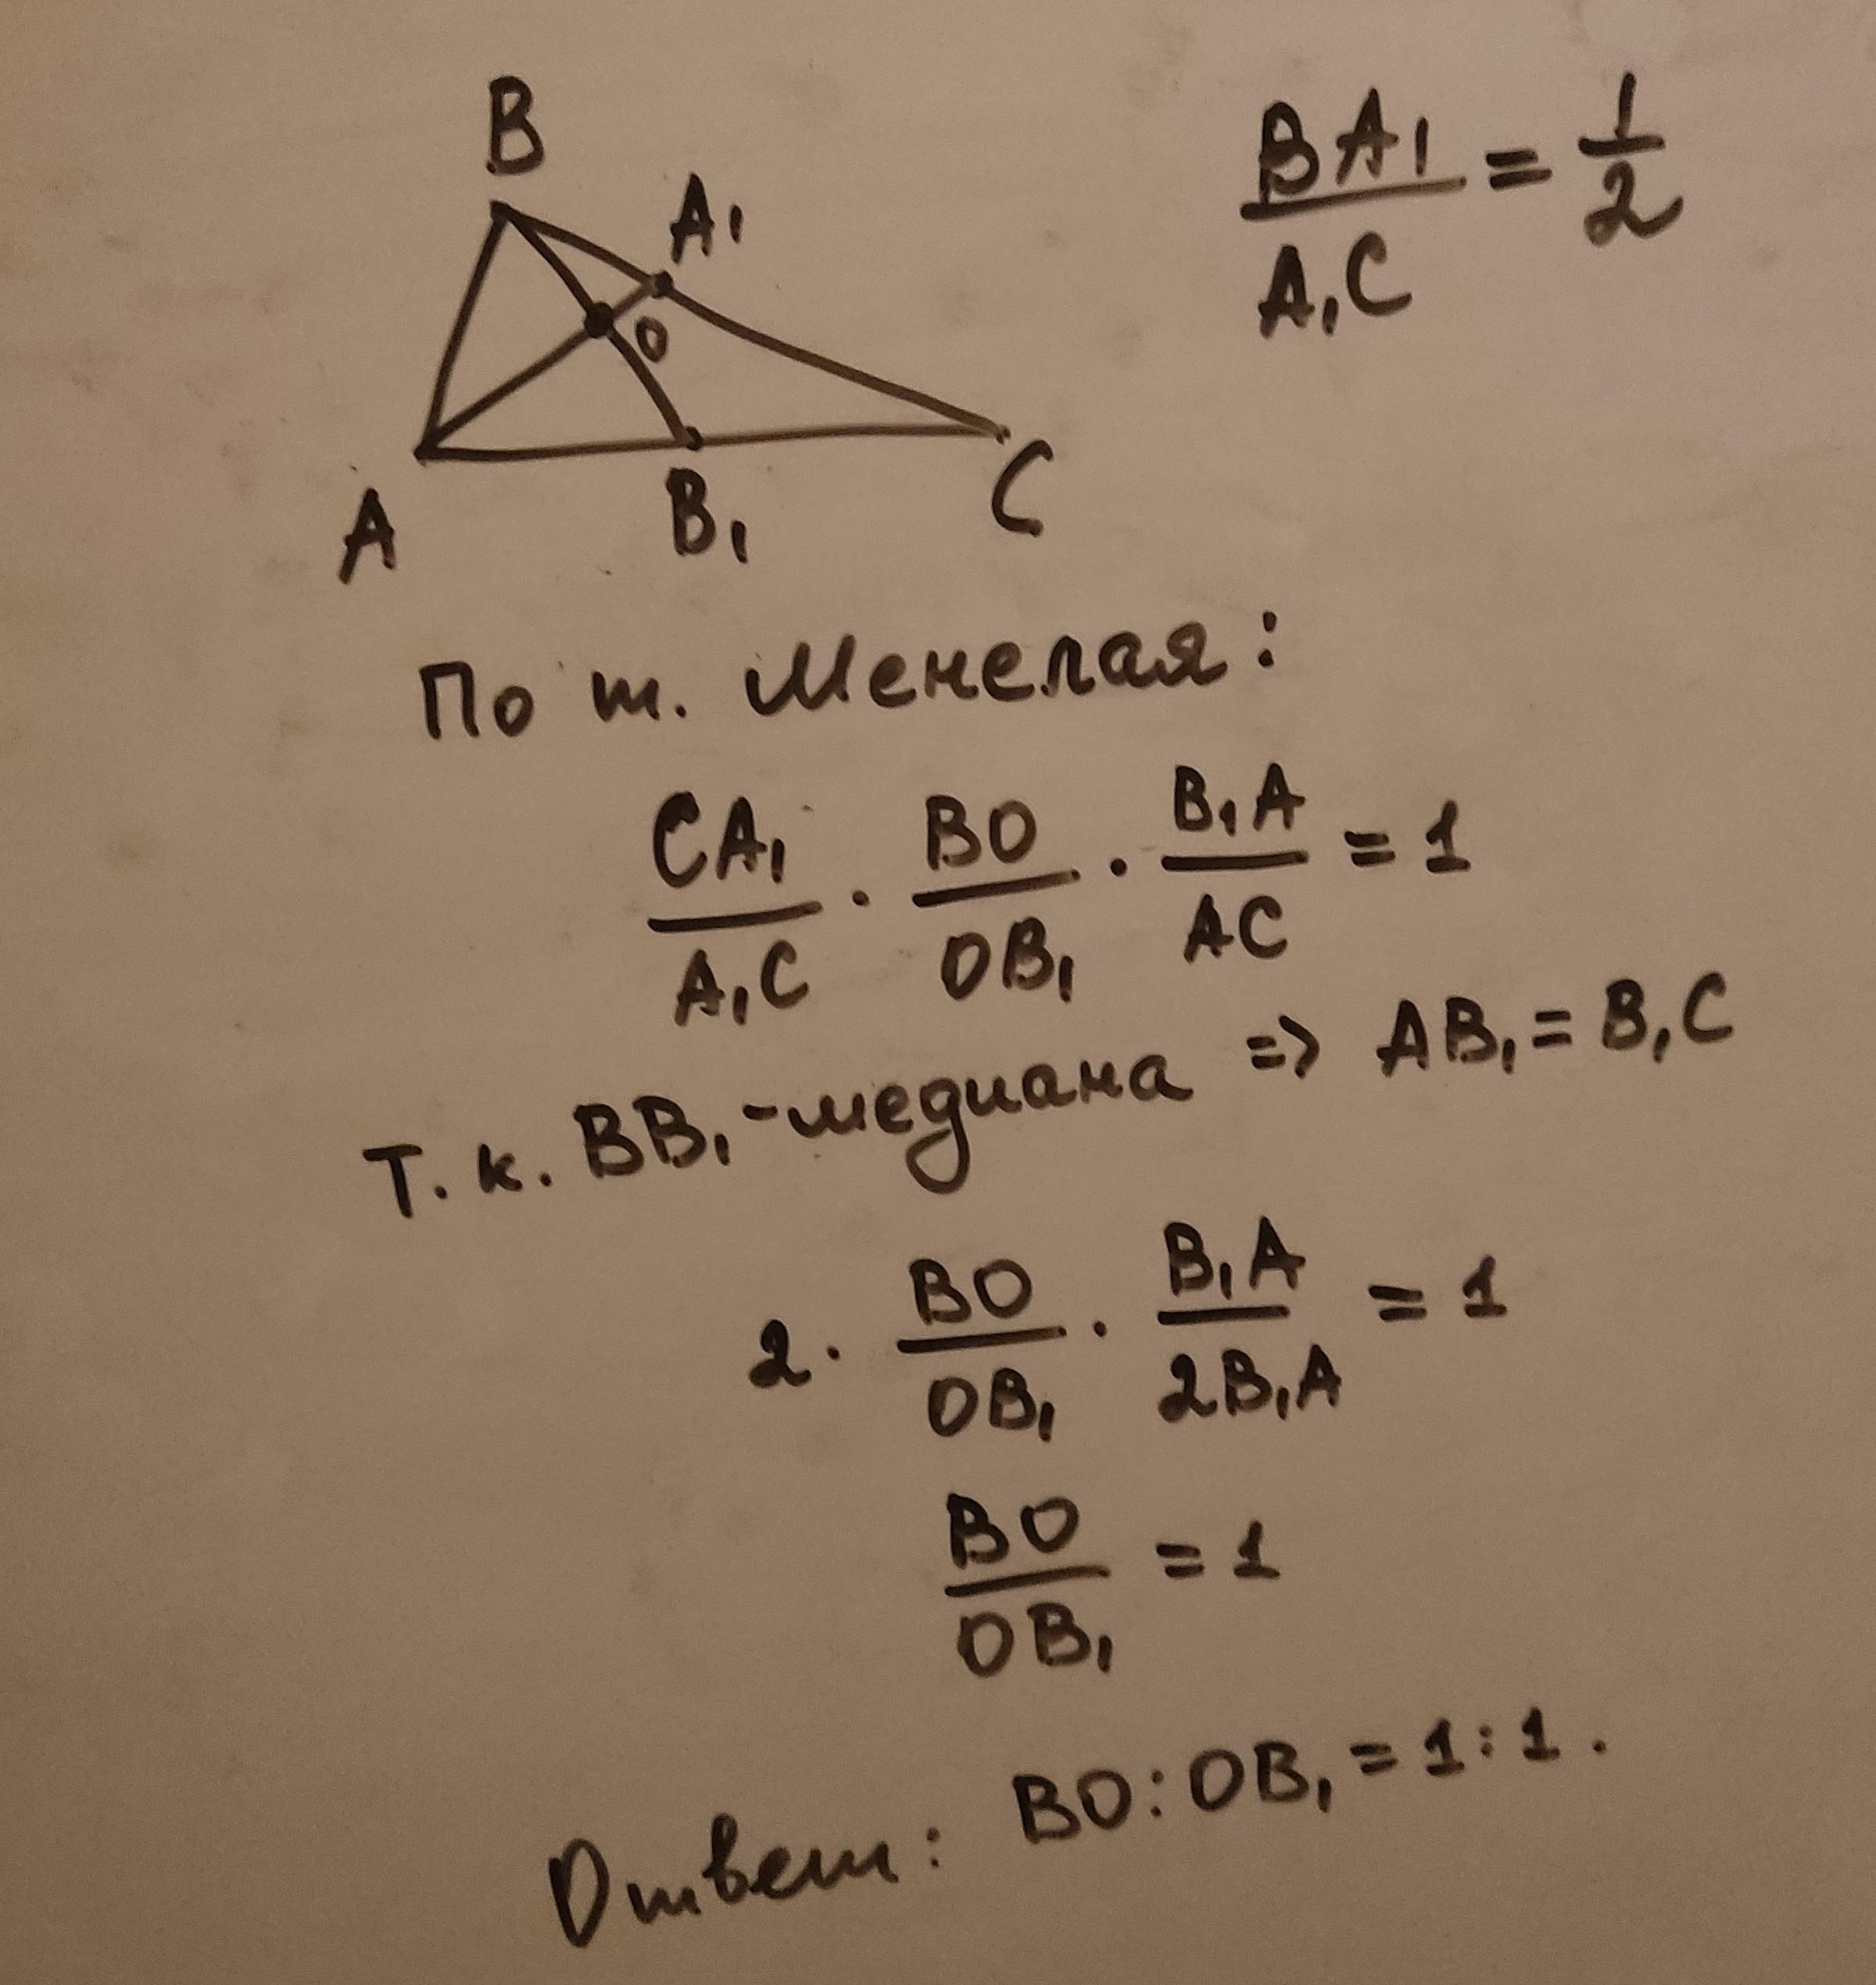 B
A₁
O
A
B₁
C
BA₁/A₁C = 1/2
По т. Менелая:
CA₁/A₁C · BO/OB₁ · B₁A/AC = 1
Т.к. BB₁-медиана => AB₁ = B₁C
2 · BO/OB₁ · B₁A/2B₁A = 1
BO/OB₁ = 1
Ответ: BO:OB₁ = 1:1.